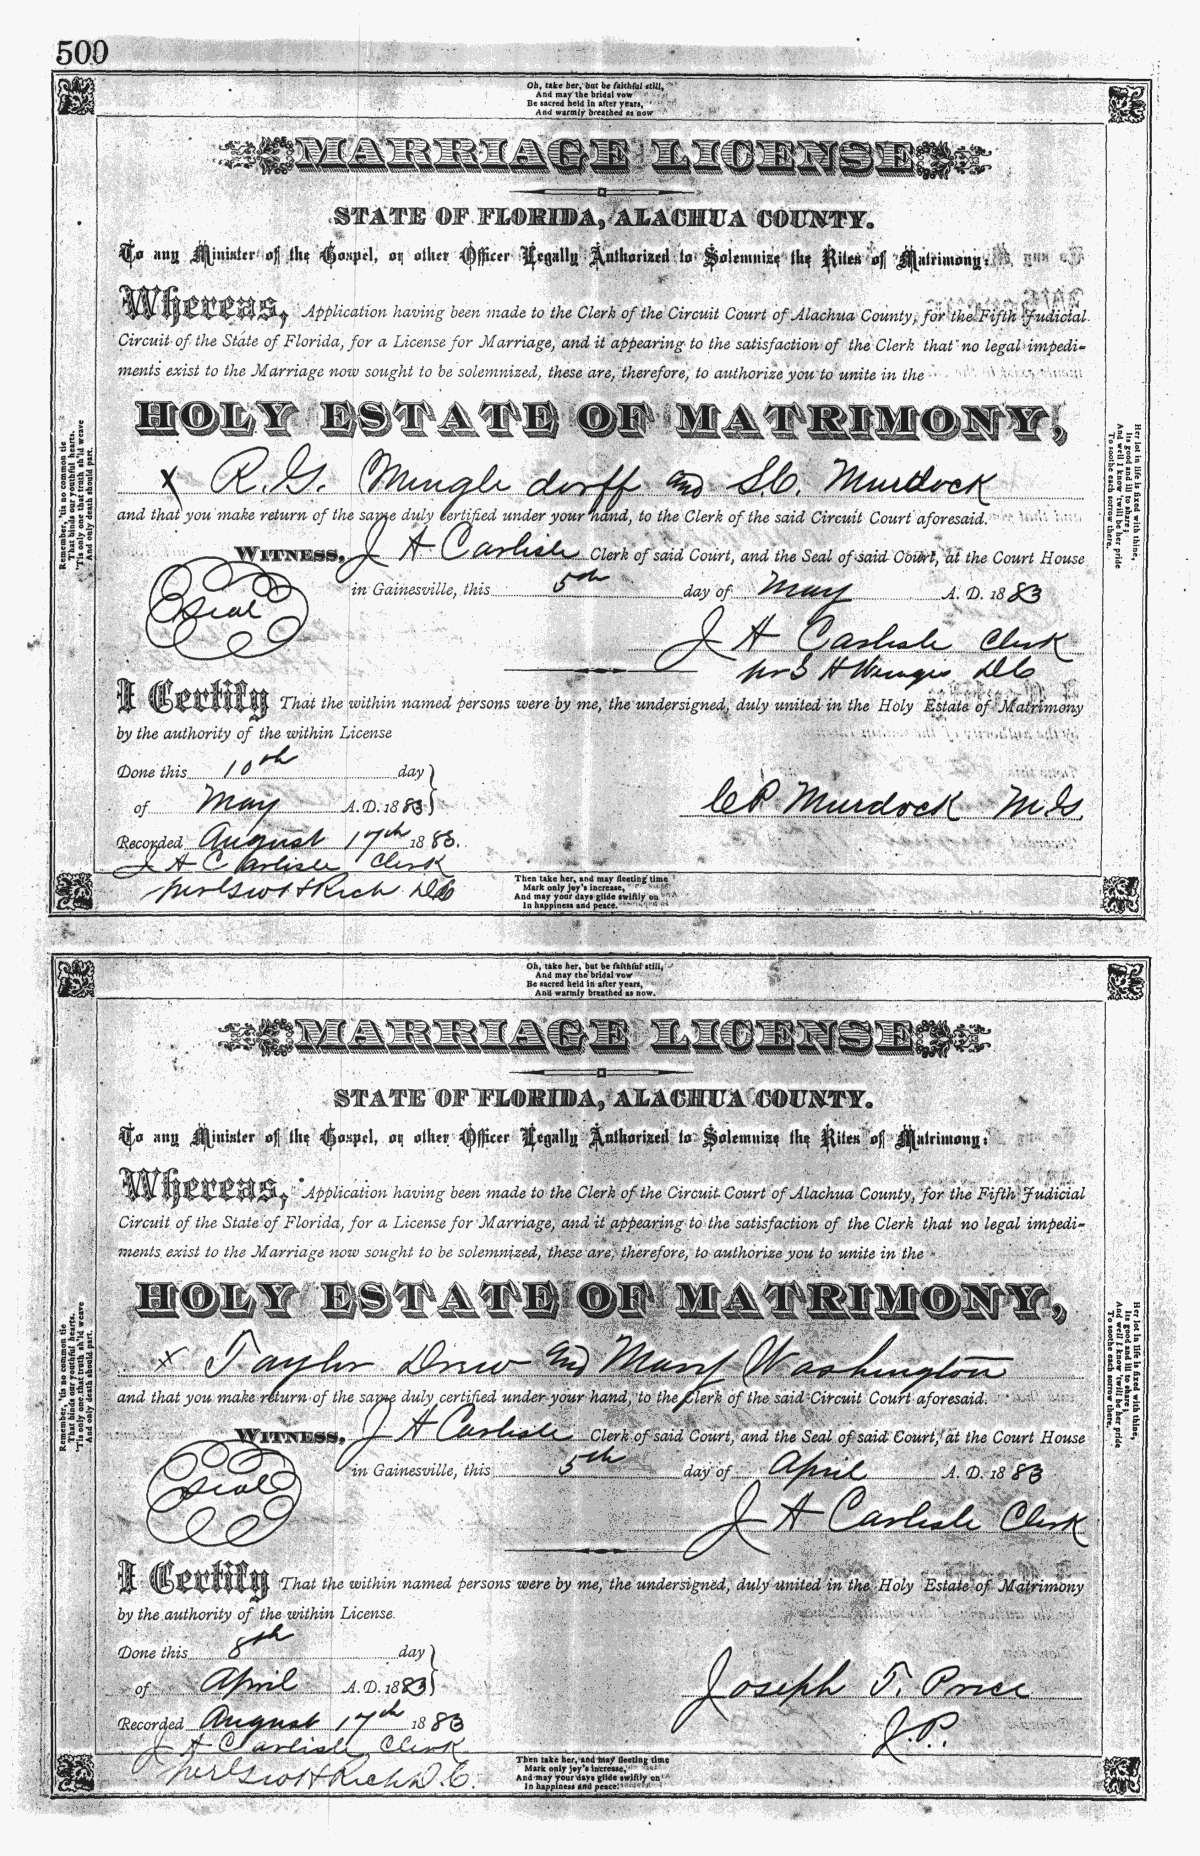 500
Oh, take her, but be faithful still,
And may the bridal vow
Be sacred held in after years,
And warmly breathed as now
MARRIAGE LICENSE
STATE OF FLORIDA, ALACHUA COUNTY.
To any Minister of the Gospel, or other Officer Legally Authorized to Solemnize the Rites of Matrimony:
Whereas, Application having been made to the Clerk of the Circuit Court of Alachua County, for the Fifth Judicial
Circuit of the State of Florida, for a License for Marriage, and it appearing to the satisfaction of the Clerk that no legal impedi-
ments exist to the Marriage now sought to be solemnized, these are, therefore, to authorize you to unite in the
HOLY ESTATE OF MATRIMONY,
x R. G. Mingle dorff and S. C. Murdock
and that you make return of the same duly certified under your hand, to the Clerk of the said Circuit Court aforesaid.
WITNESS, J A Carlisle Clerk of said Court, and the Seal of said Court, at the Court House
Seal
in Gainesville, this 5th day of May A. D. 1883
J A Carlisle Clerk
D C
I Certify That the within named persons were by me, the undersigned, duly united in the Holy Estate of Matrimony
by the authority of the within License
Done this 10th day
of May A. D. 1883
C P Murdock M. G.
Recorded August 17th 1883.
J A Carlisle Clerk
per Geo H Rich D C
Remember, 'tis no common tie
That binds our youthful hearts,
'Tis only one that truth sh'ld weave
And only death should part.
Her lot in life is fixed with thine,
Its good and ill to share;
And well I know 'twill be her pride
To soothe each sorrow there.
Then take her, and may fleeting time
Mark only joy's increase,
And may your days glide swiftly on
In happiness and peace.
Oh, take her, but be faithful still,
And may the bridal vow
Be sacred held in after years,
And warmly breathed as now.
MARRIAGE LICENSE
STATE OF FLORIDA, ALACHUA COUNTY.
To any Minister of the Gospel, or other Officer Legally Authorized to Solemnize the Rites of Matrimony:
Whereas, Application having been made to the Clerk of the Circuit Court of Alachua County, for the Fifth Judicial
Circuit of the State of Florida, for a License for Marriage, and it appearing to the satisfaction of the Clerk that no legal impedi-
ments exist to the Marriage now sought to be solemnized, these are, therefore, to authorize you to unite in the
HOLY ESTATE OF MATRIMONY,
x Taylor Drew and Mary Washington
and that you make return of the same duly certified under your hand, to the Clerk of the said Circuit Court aforesaid.
WITNESS, J A Carlisle Clerk of said Court, and the Seal of said Court, at the Court House
Seal
in Gainesville, this 5th day of April A. D. 1883
J A Carlisle Clerk
I Certify That the within named persons were by me, the undersigned, duly united in the Holy Estate of Matrimony
by the authority of the within License.
Done this 8th day
of April A. D. 1883
Joseph T. Price
J. P.
Recorded August 17th 1883
J A Carlisle Clerk
per Geo H Rich D. C.
Remember, 'tis no common tie
That binds our youthful hearts,
'Tis only one that truth sh'ld weave
And only death should part.
Her lot in life is fixed with thine,
Its good and ill to share;
And well I know 'twill be her pride
To soothe each sorrow there.
Then take her, and may fleeting time
Mark only joy's increase,
And may your days glide swiftly on
In happiness and peace.